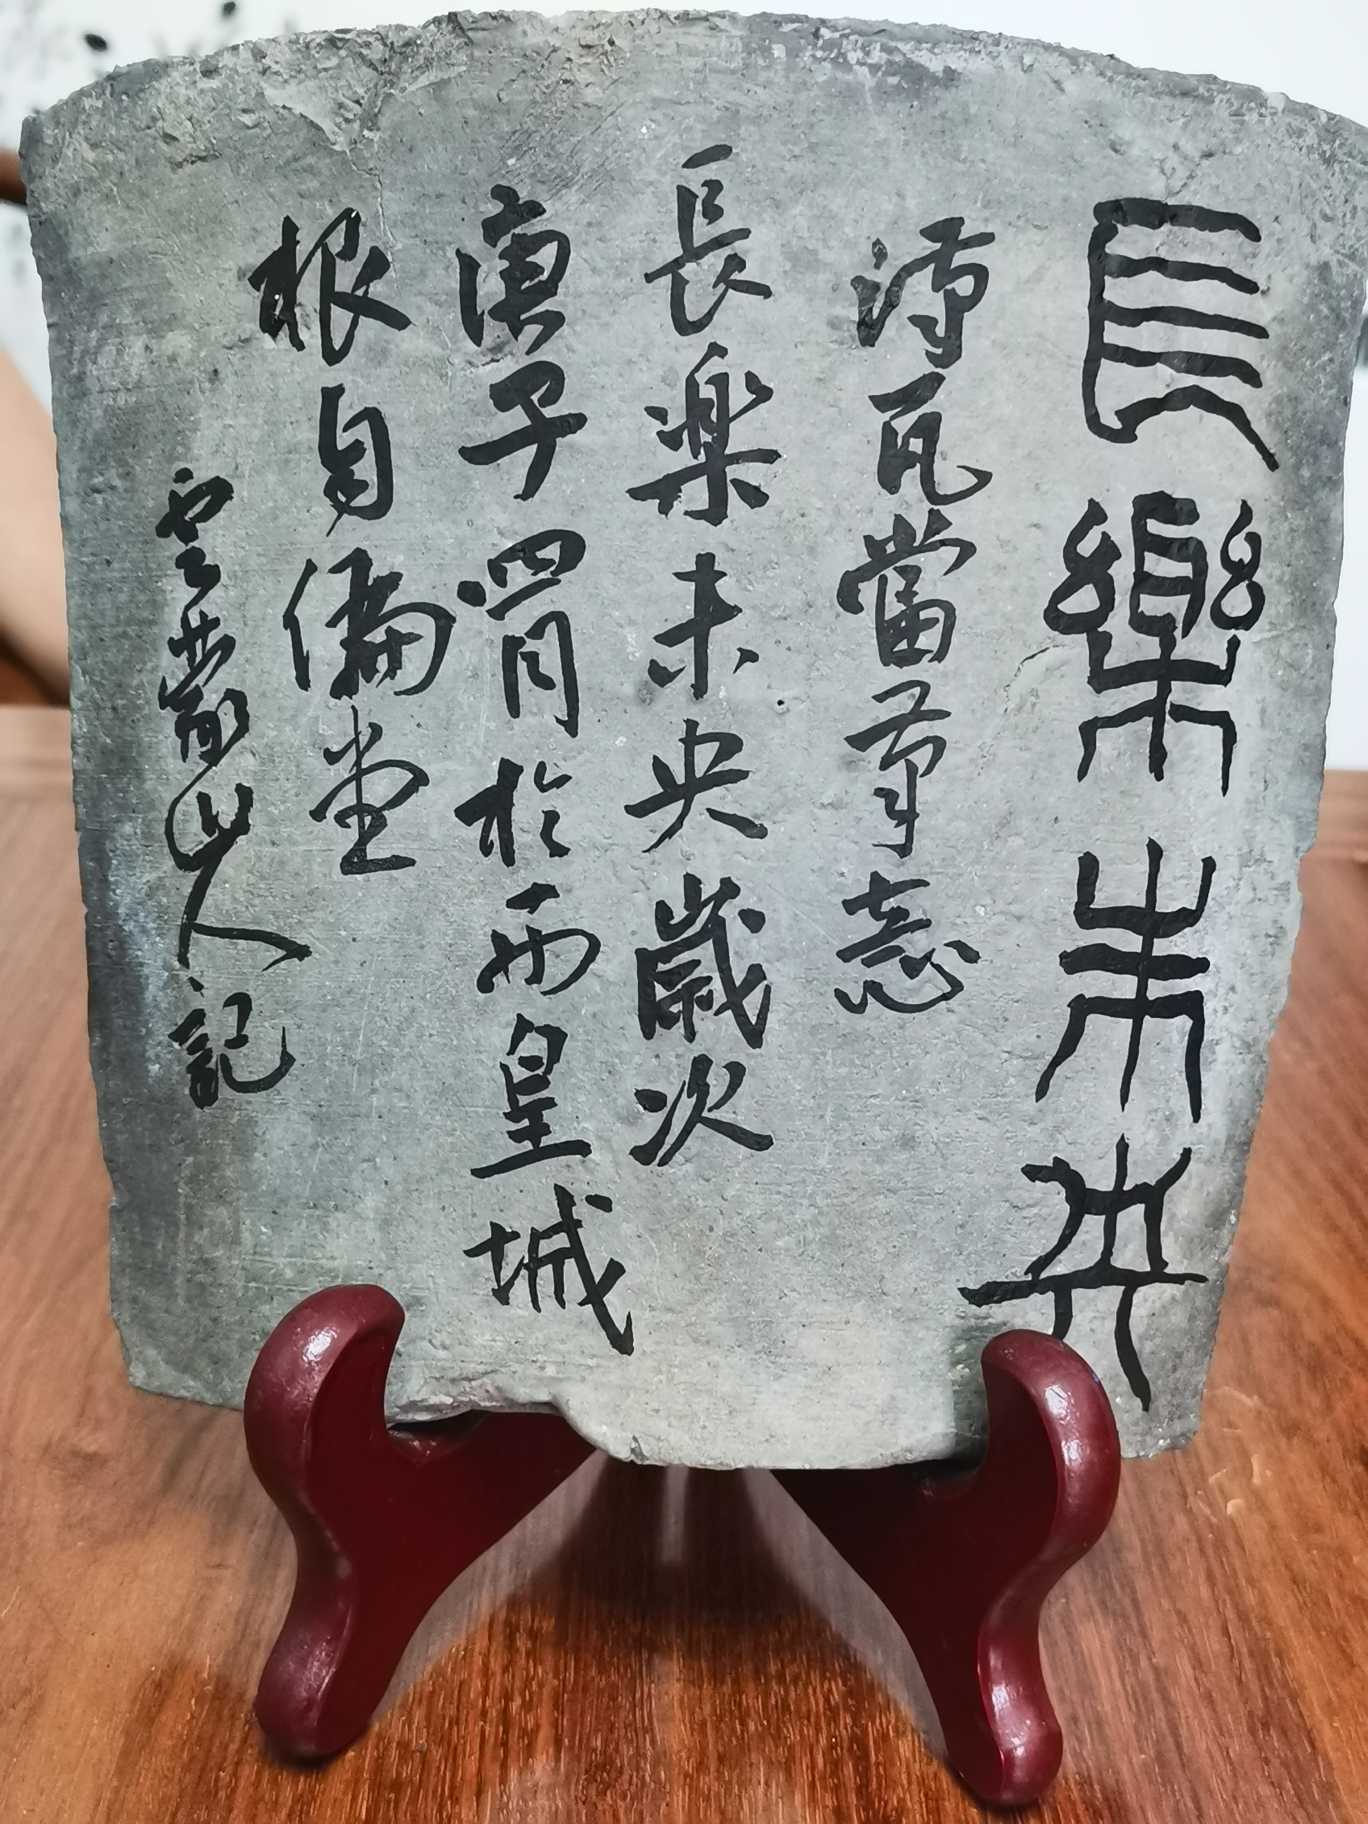 長樂未央
瓦當筆意
長楽未央歲次
庚子四月於西皇城
根自偏堂
雲蒙山人記